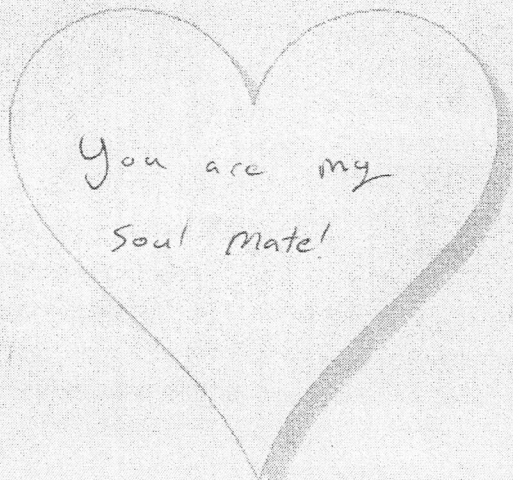 You are my
Soul Mate!